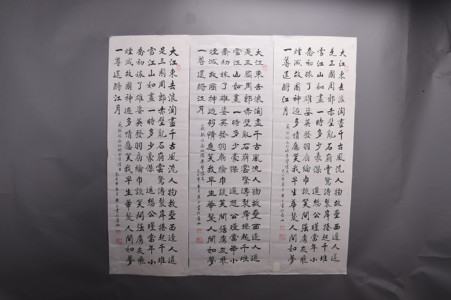 大江東去浪淘盡千古風流人物故壘西邊人道
是三國周郎赤壁亂石崩雲驚濤裂岸捲起千堆
雪江山如畫一時多少豪傑遙想公瑾當年小
喬初嫁了雄姿英發羽扇綸巾談笑間強虜灰飛
煙滅故國神遊多情應笑我早生華髮人間如夢
一尊還酹江月
大江東去浪淘盡千古風流人物故壘西邊人道
是三國周郎赤壁亂石崩雲驚濤裂岸捲起千堆
雪江山如畫一時多少豪傑遙想公瑾當年小
喬初嫁了雄姿英發羽扇綸巾談笑間強虜灰飛
煙滅故國神遊多情應笑我早生華髮人間如夢
一尊還酹江月
大江東去浪淘盡千古風流人物故壘西邊人道
是三國周郎赤壁亂石崩雲驚濤裂岸捲起千堆
雪江山如畫一時多少豪傑遙想公瑾當年小
喬初嫁了雄姿英發羽扇綸巾談笑間強虜灰飛
煙滅故國神遊多情應笑我早生華髮人間如夢
一尊還酹江月